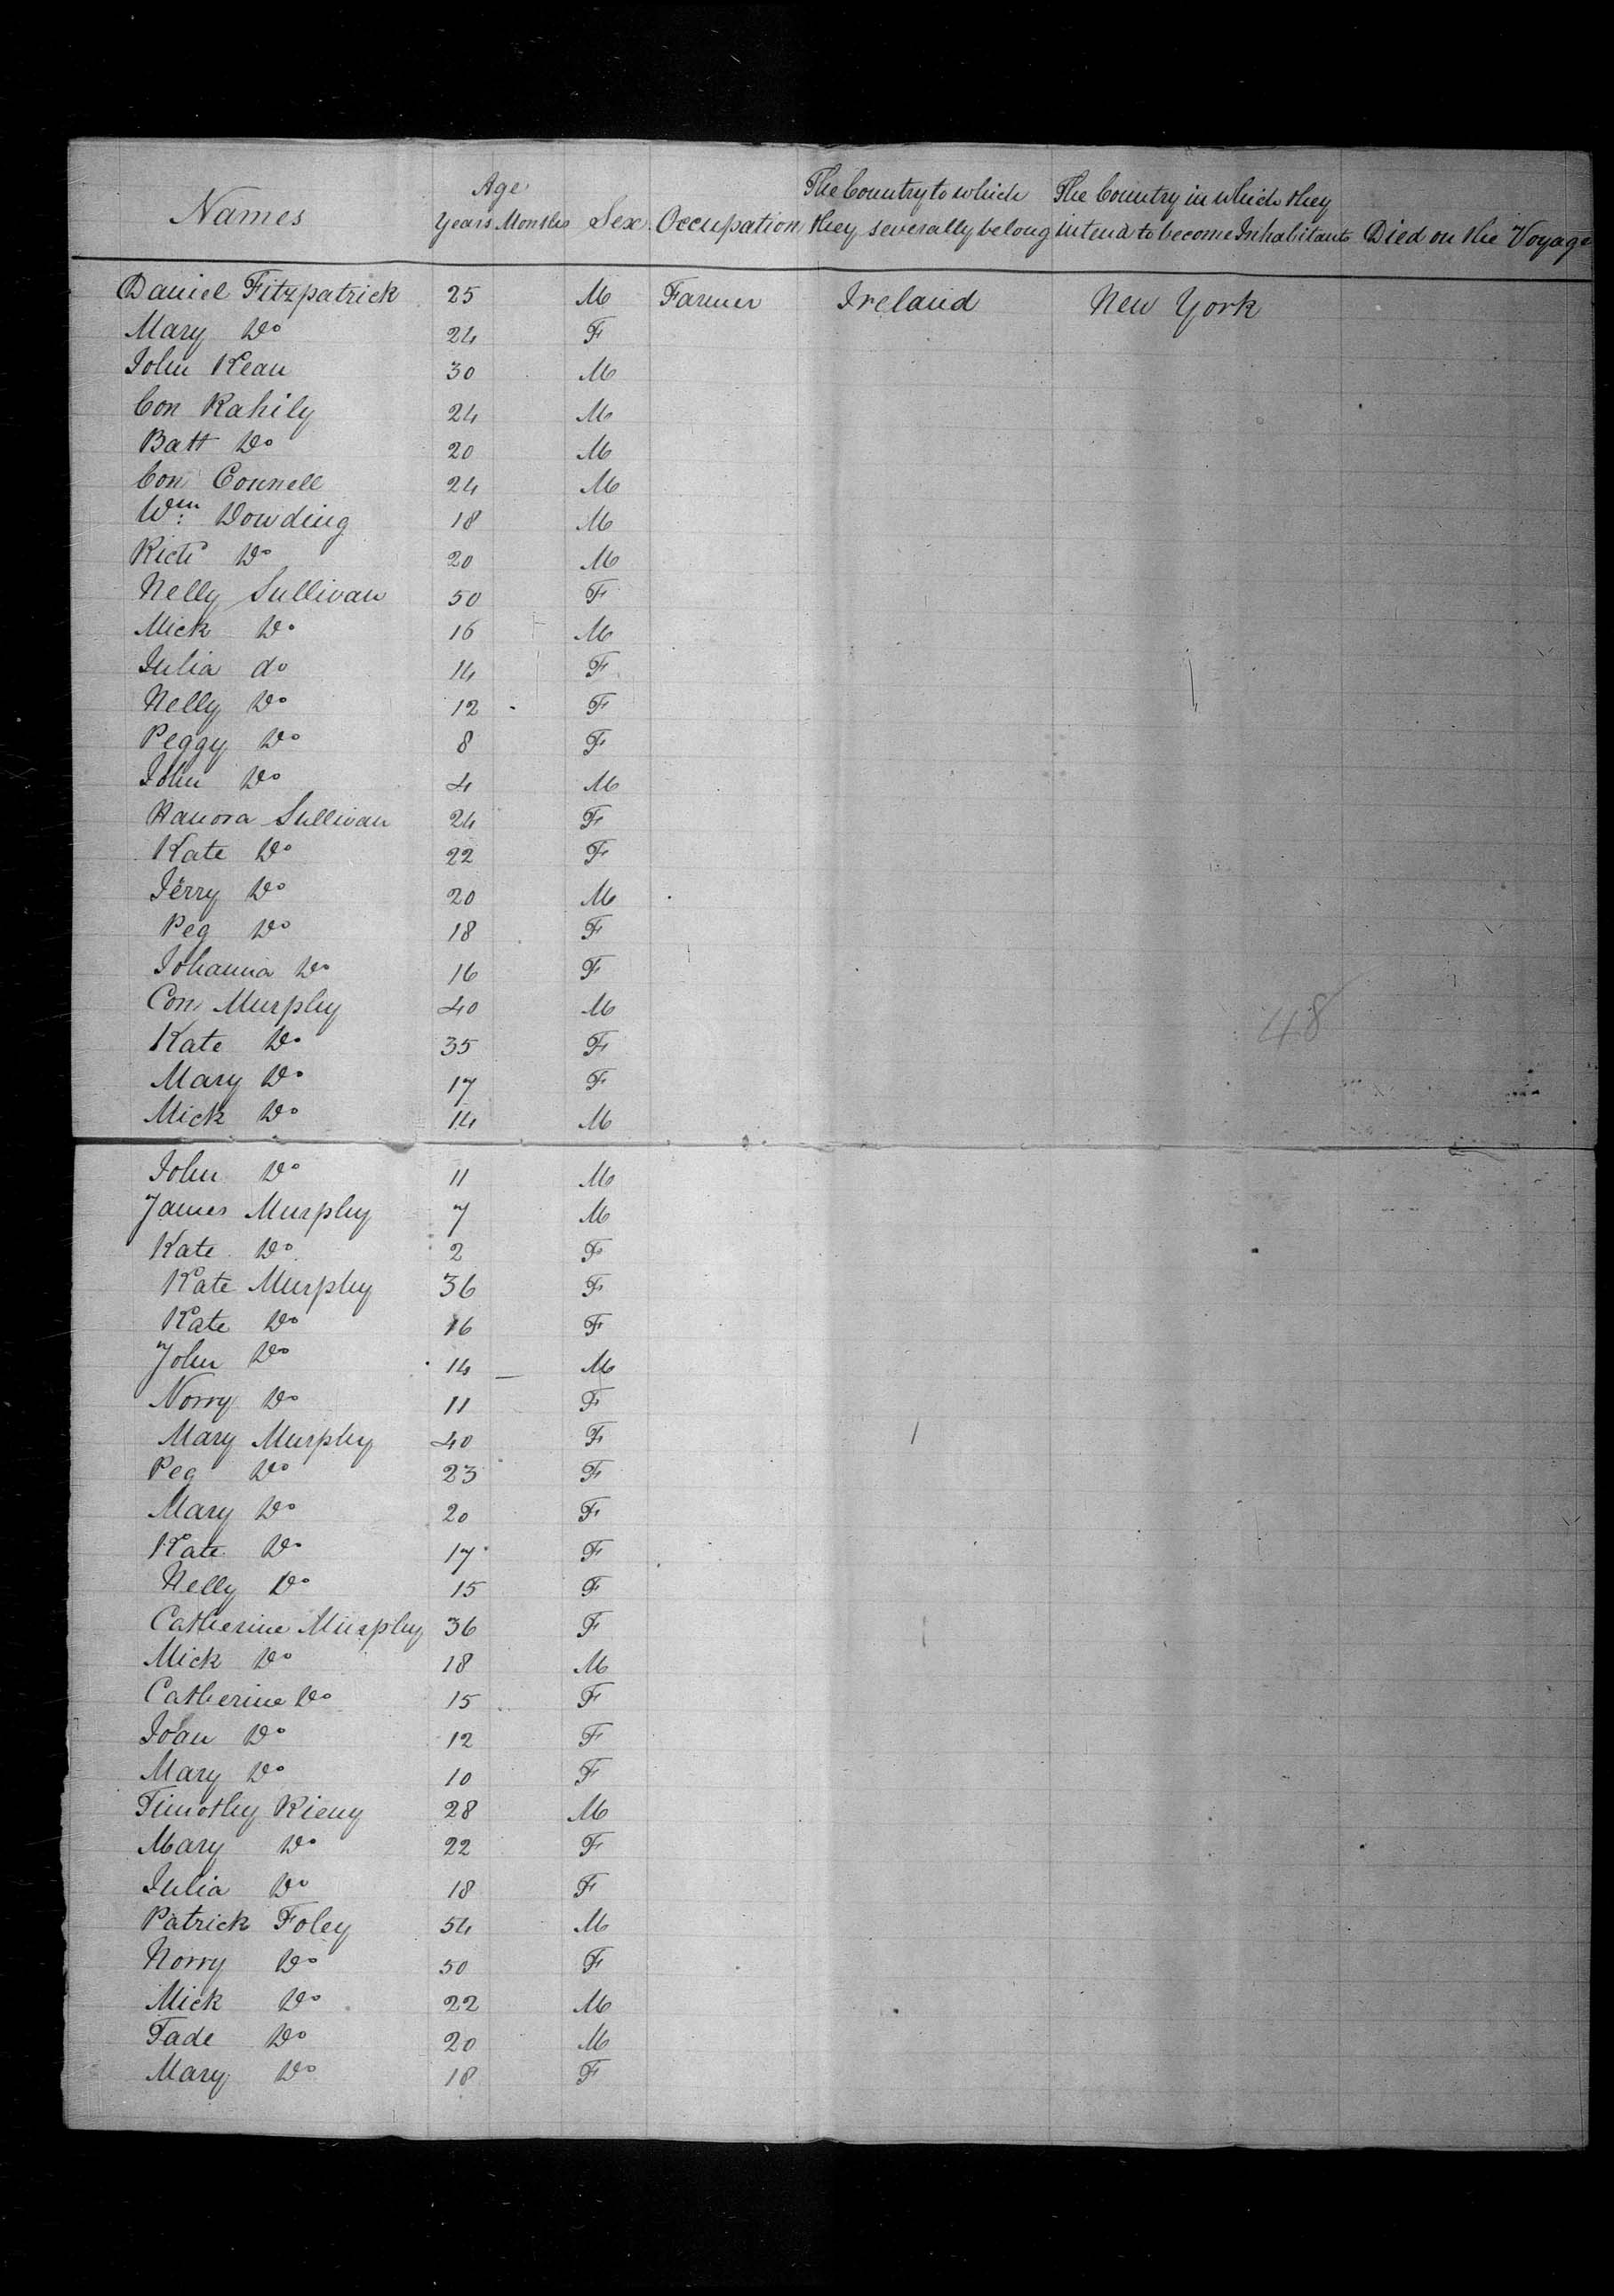 Names Age Years Months Sex Occupation The Country to which they severally belong The Country in which they intend to become Inhabitants Died on the Voyage
Daniel Fitzpatrick 25 M Farmer Ireland New York
Mary Do 24 F
John Kean 30 M
Con Rahily 24 M
Batt Do 20 M
Con Connell 24 M
Wm Dowding 18 M
Rich Do 20 M
Nelly Sullivan 50 F
Mick Do 16 M
Julia do 14 F
Nelly Do 12 F
Peggy Do 8 F
John Do 4 M
Hanora Sullivan 24 F
Kate Do 22 F
Jerry Do 20 M
Peg Do 18 F
Johanna Do 16 F
Con Murphy 40 M
48
Kate Do 35 F
Mary Do 17 F
Mick Do 14 M
John Do 11 M
James Murphy 7 M
Kate Do 2 F
Kate Murphy 36 F
Kate Do 16 F
John Do 14 M
Norry Do 11 F
Mary Murphy 40 F
Peg Do 23 F
Mary Do 20 F
Kate Do 17 F
Nelly Do 15 F
Catherine Murphy 36 F
Mick Do 18 M
Catherine Do 15 F
Joan Do 12 F
Mary Do 10 F
Timothy Rieny 28 M
Mary Do 22 F
Julia Do 18 F
Patrick Foley 54 M
Norry Do 50 F
Mick Do 22 M
Tade Do 20 M
Mary Do 18 F